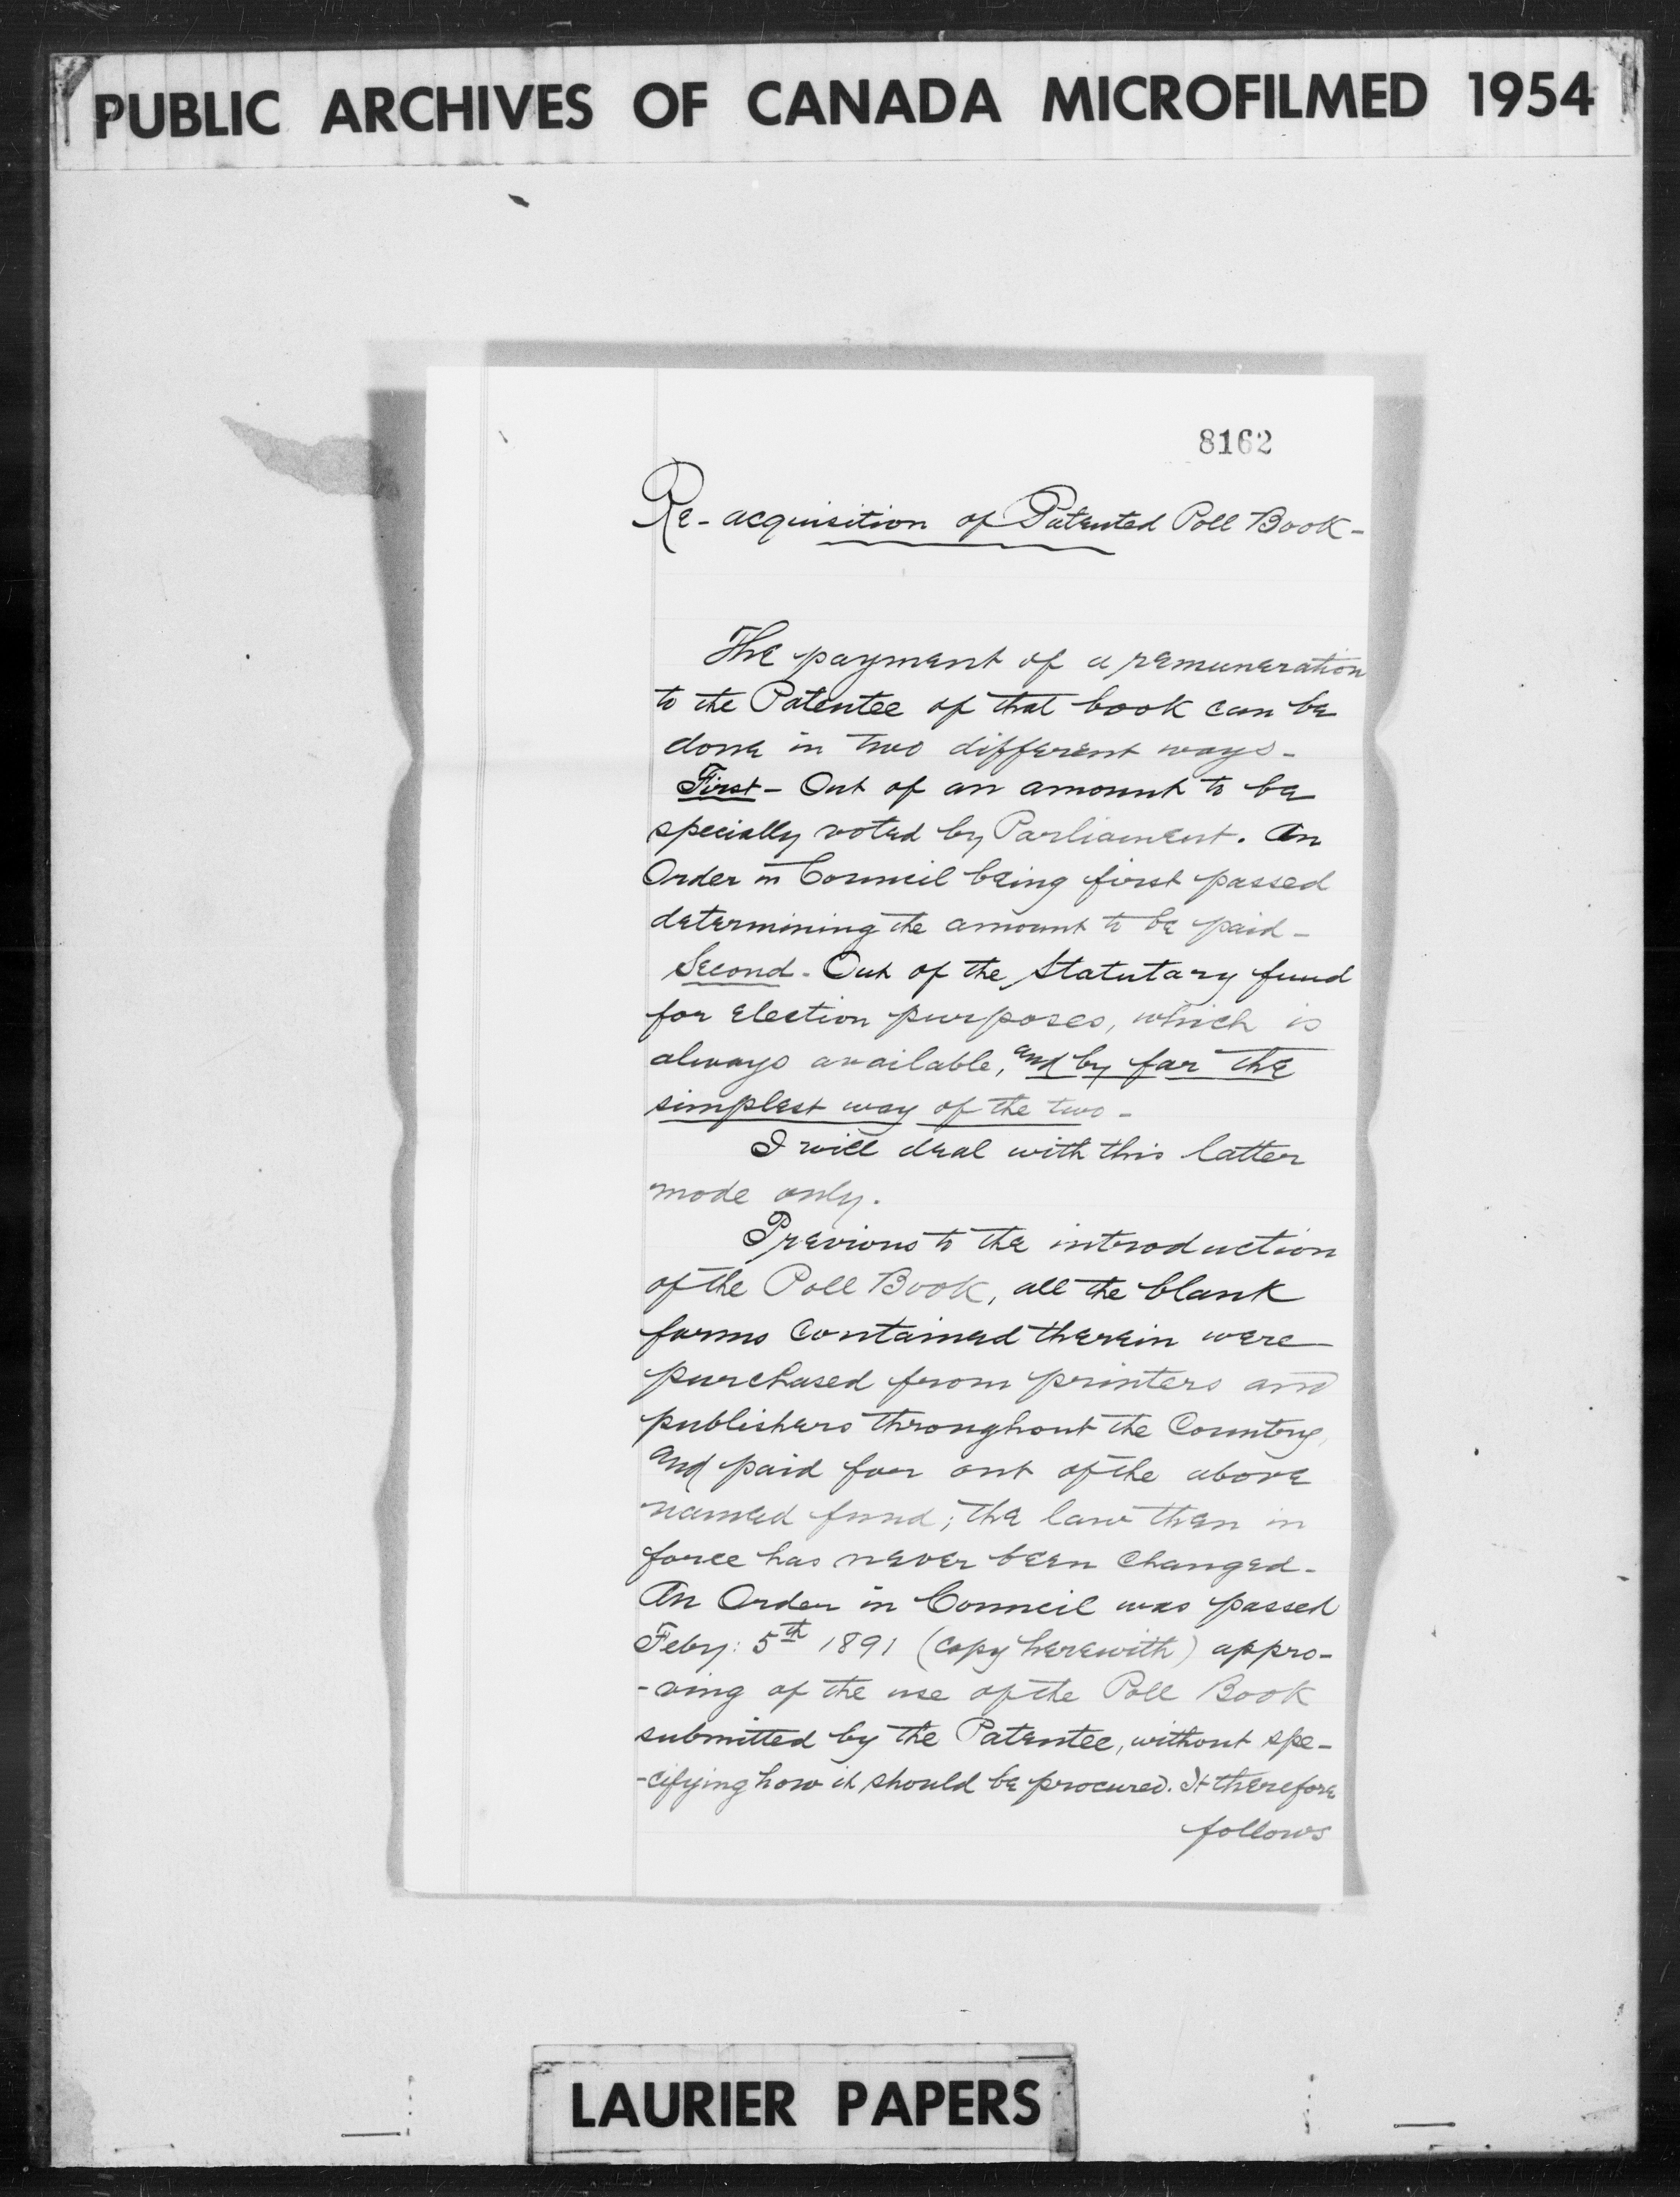 PUBLIC ARCHIVES OF CANADA MICROFILMED 1954
8162
Re-acquisition of Patented Poll Book-
The payment of a remuneration
to the Patentee of that book can be
done in two different ways-
First- Out of an amount to be
specially voted by Parliament. An
Order in Council being first passed
determining the amount to be paid-
Second- Out of the Statutary fund
for election purposes, which is
always available, and by far the
simplest way of the two-
I will deal with this latter
mode only.
Previous to the introduction
of the Poll Book, all the blank
forms contained therein were
purchased from printers and
publishers throughout the Country,
and paid for out of the above
named fund; the law then in
force has never been changed-
An Order in Council was passed
Feby: 5th 1891 (copy herewith) appro-
-ving of the use of the Poll Book
submitted by the Patentee, without spe-
-cifying how it should be procured. It therefore
follows
LAURIER PAPERS